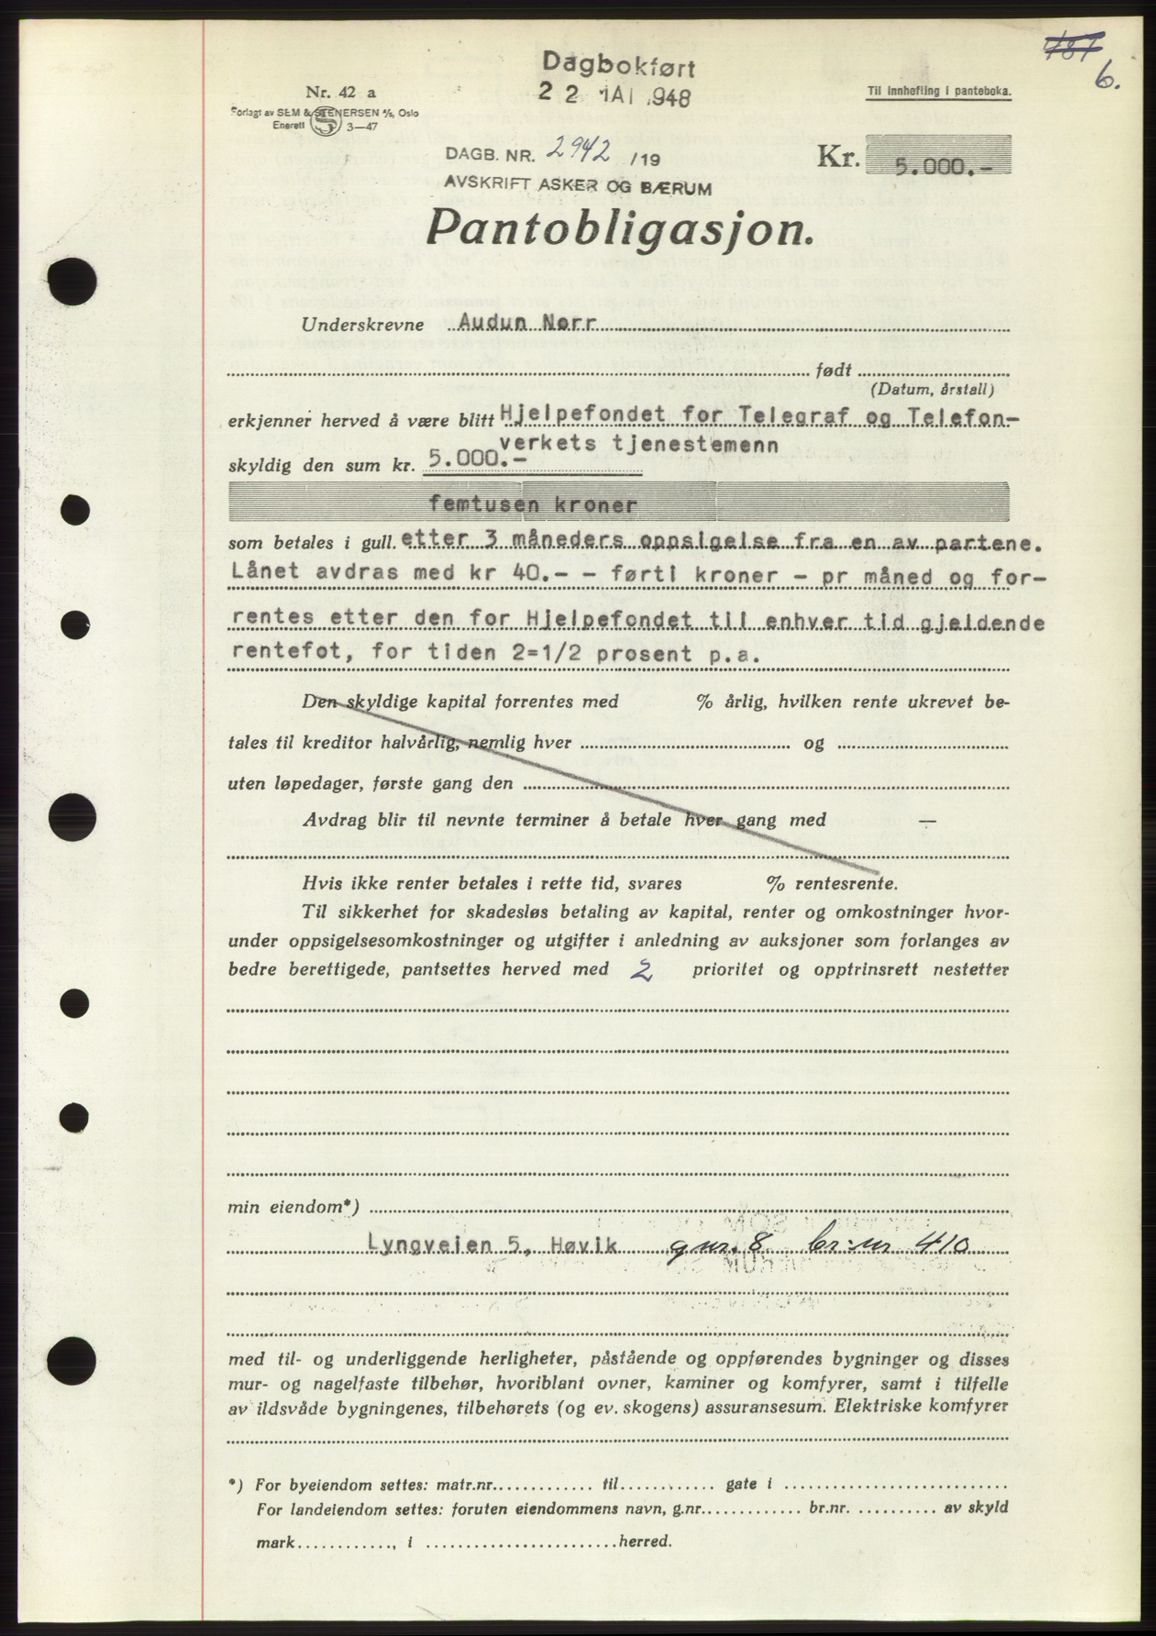 6.
Dagbokført
22 MAI 1948
Nr. 42 a
Forlagt av SEM & STENERSEN A/S, Oslo
Enerett S 3—47
Til innhefting i panteboka.
DAGB. NR. 2942 /19
Kr. 5.000.-
AVSKRIFT ASKER OG BÆRUM
Pantobligasjon.
Underskrevne Audun Nørr
født
(Datum, årstall)
erkjenner herved å være blitt Hjelpefondet for Telegraf og Telefon-
verkets tjenestemenn
skyldig den sum kr. 5.000.-
femtusen kroner
som betales i gull. etter 3 måneders oppsigelse fra en av partene.
Lånet avdras med kr 40.- - førti kroner - pr måned og for-
rentes etter den for Hjelpefondet til enhver tid gjeldende
rentefot, for tiden 2=1/2 prosent p.a.
Den skyldige kapital forrentes med % årlig, hvilken rente ukrevet be-
tales til kreditor halvårlig, nemlig hver og
uten løpedager, første gang den
Avdrag blir til nevnte terminer å betale hver gang med —
Hvis ikke renter betales i rette tid, svares % rentesrente.
Til sikkerhet for skadesløs betaling av kapital, renter og omkostninger hvor-
under oppsigelsesomkostninger og utgifter i anledning av auksjoner som forlanges av
bedre berettigede, pantsettes herved med 2 prioritet og opptrinsrett nestetter
min eiendom*)
Lyngveien 5, Høvik gnr. 8 br.nr 410
med til- og underliggende herligheter, påstående og oppførendes bygninger og disses
mur- og nagelfaste tilbehør, hvoriblant ovner, kaminer og komfyrer, samt i tilfelle
av ildsvåde bygningenes, tilbehørets (og ev. skogens) assuransesum. Elektriske komfyrer
*) For byeiendom settes: matr.nr. til gate i
For landeiendom settes: foruten eiendommens navn, g.nr. br.nr. av skyld
mark , i herred.